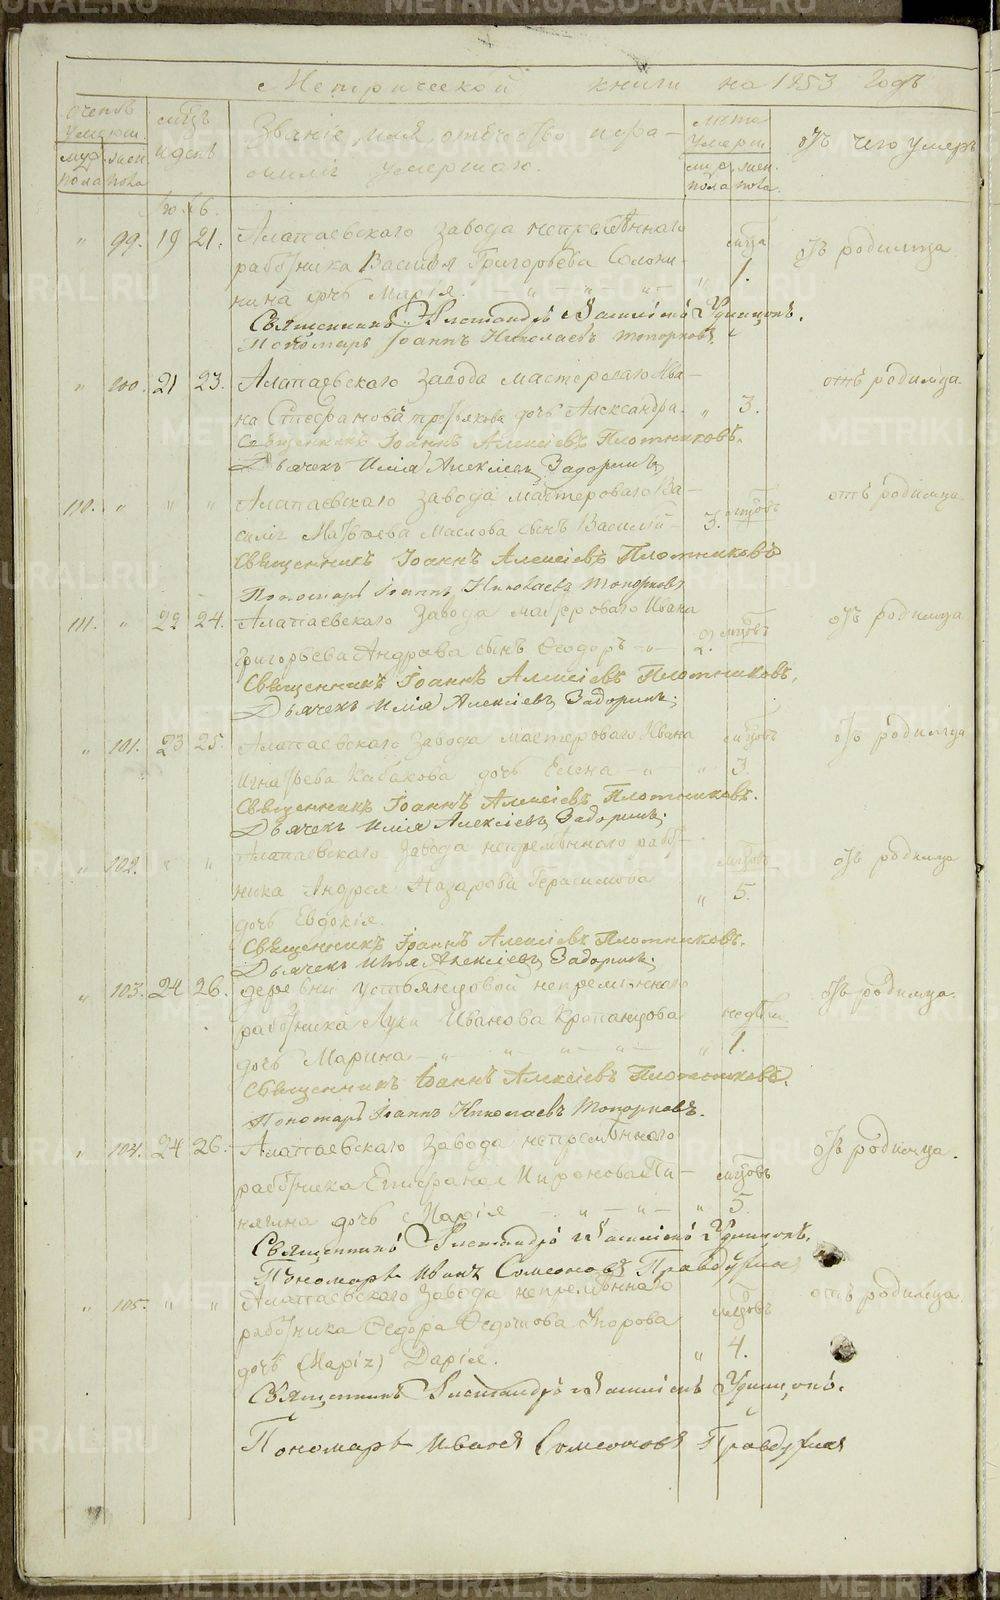 Метрической книги на 1853 Годъ
счетъ умерш. мѣцъ и день Званіе, имя, отчество и фамилія умершаго. лѣта умерш. отъ чего умеръ
муж. пола жен. пола муж. пола жен. пола
" 99. 19 21. Алапаевскаго завода непремѣннаго мѣца отъ родимца
работника Василія Григорьева 1.
дочь Марія. " — " — " — "
Священникъ Александръ Удинцовъ.
Пономарь Іоаннъ Николаевъ Топорковъ.
" 100. 21 23. Алапаевскаго завода мастероваго Ива- отъ родимца.
на Стефанова Третьякова дочь Александра. " 3.
Священникъ Іоаннъ Алексіевъ Плотниковъ.
Дьячекъ Илія Алексіевъ Задоринъ
110. " " " Алапаевскаго завода мастероваго Ва- мѣцовъ отъ родимца.
силія Матвѣева Маслова сынъ Василій — 3.
Священникъ Іоаннъ Алексіевъ Плотниковъ
Пономарь Іоаннъ Николаевъ Топорковъ
111. " 22 24. Алапаевскаго завода мастероваго Ивана мѣцовъ отъ родимца
Григорьева Андреева сынъ Ѳеодоръ — " — 2.
Священникъ Іоаннъ Алексіевъ Плотниковъ.
Дьячекъ Илія Алексіевъ Задоринъ;
" 101. 23 25. Алапаевскаго завода мастероваго Ивана мѣцовъ отъ родимца
Игнатьева Кабакова дочь Елена — " — " 3.
Священникъ Іоаннъ Алексіевъ Плотниковъ.
Дьячекъ Илія Алексіевъ Задоринъ;
" 102. " " Алапаевскаго завода непремѣннаго рабо- мѣцовъ отъ родимца
ника Андрея Назарова Герасимова " 5.
дочь Евдокія.
Священникъ Іоаннъ Алексіевъ Плотниковъ.
Дьячекъ Илья Алексіевъ Задоринъ.
" 103. 24 26. деревни Устьянцовой непремѣннаго отъ родимца.
работника Луки Иванова недѣли
дочь Марина — " — " — " — " — " 1.
Священникъ Іоаннъ Алексіевъ Плотниковъ.
Пономарь Іоаннъ Николаевъ Топорковъ.
" 104. 24 26. Алапаевскаго завода непремѣннаго отъ родимца.
работника Епифана Миронова мѣцовъ
дочь Марія — " — " — " 5.
Священникъ Александръ Удинцовъ.
Пономарь Иванъ Симеоновъ Правдухинъ
" 105. " " Алапаевскаго завода непремѣннаго мѣцовъ отъ родимца.
работника Ѳедора Ѳедотова 4.
дочь (Марія) Дарія. "
Священникъ Александръ Удинцовъ.
Пономарь Иванъ Симеоновъ Правдухинъ
METRIKI.GASO-URAL.RU